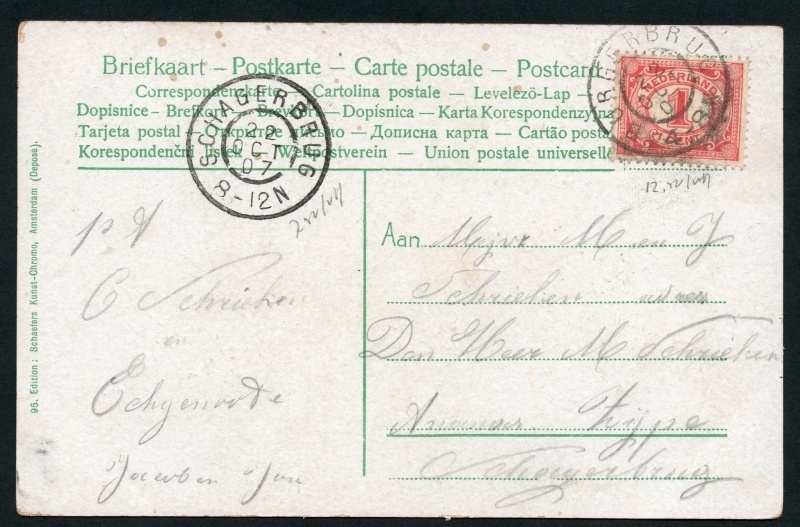 Briefkaart – Postkarte – Carte postale – Postcard
Correspondenzkarte – Cartolina postale – Levelező-Lap
Dopisnice – Brefkort – Dopisnica – Karta Korespondenzyjna
Tarjeta postal – письмо – Дописна карта – Cartão postal
Korespondenční listek – Weltpostverein – Union postale universelle
SCHAGERBRUG
22
OCT
07
8-12N
NEDERLAND
1
CENT
95. Edition: Schaefers Kunst-Chromo, Amsterdam (Deposé).
p f
C Schrieken
en
Echgenoote
Aan Mejvr M en J
Schrieken adres
Den Heer M Schrieken
Zijpe
Schagerbrug